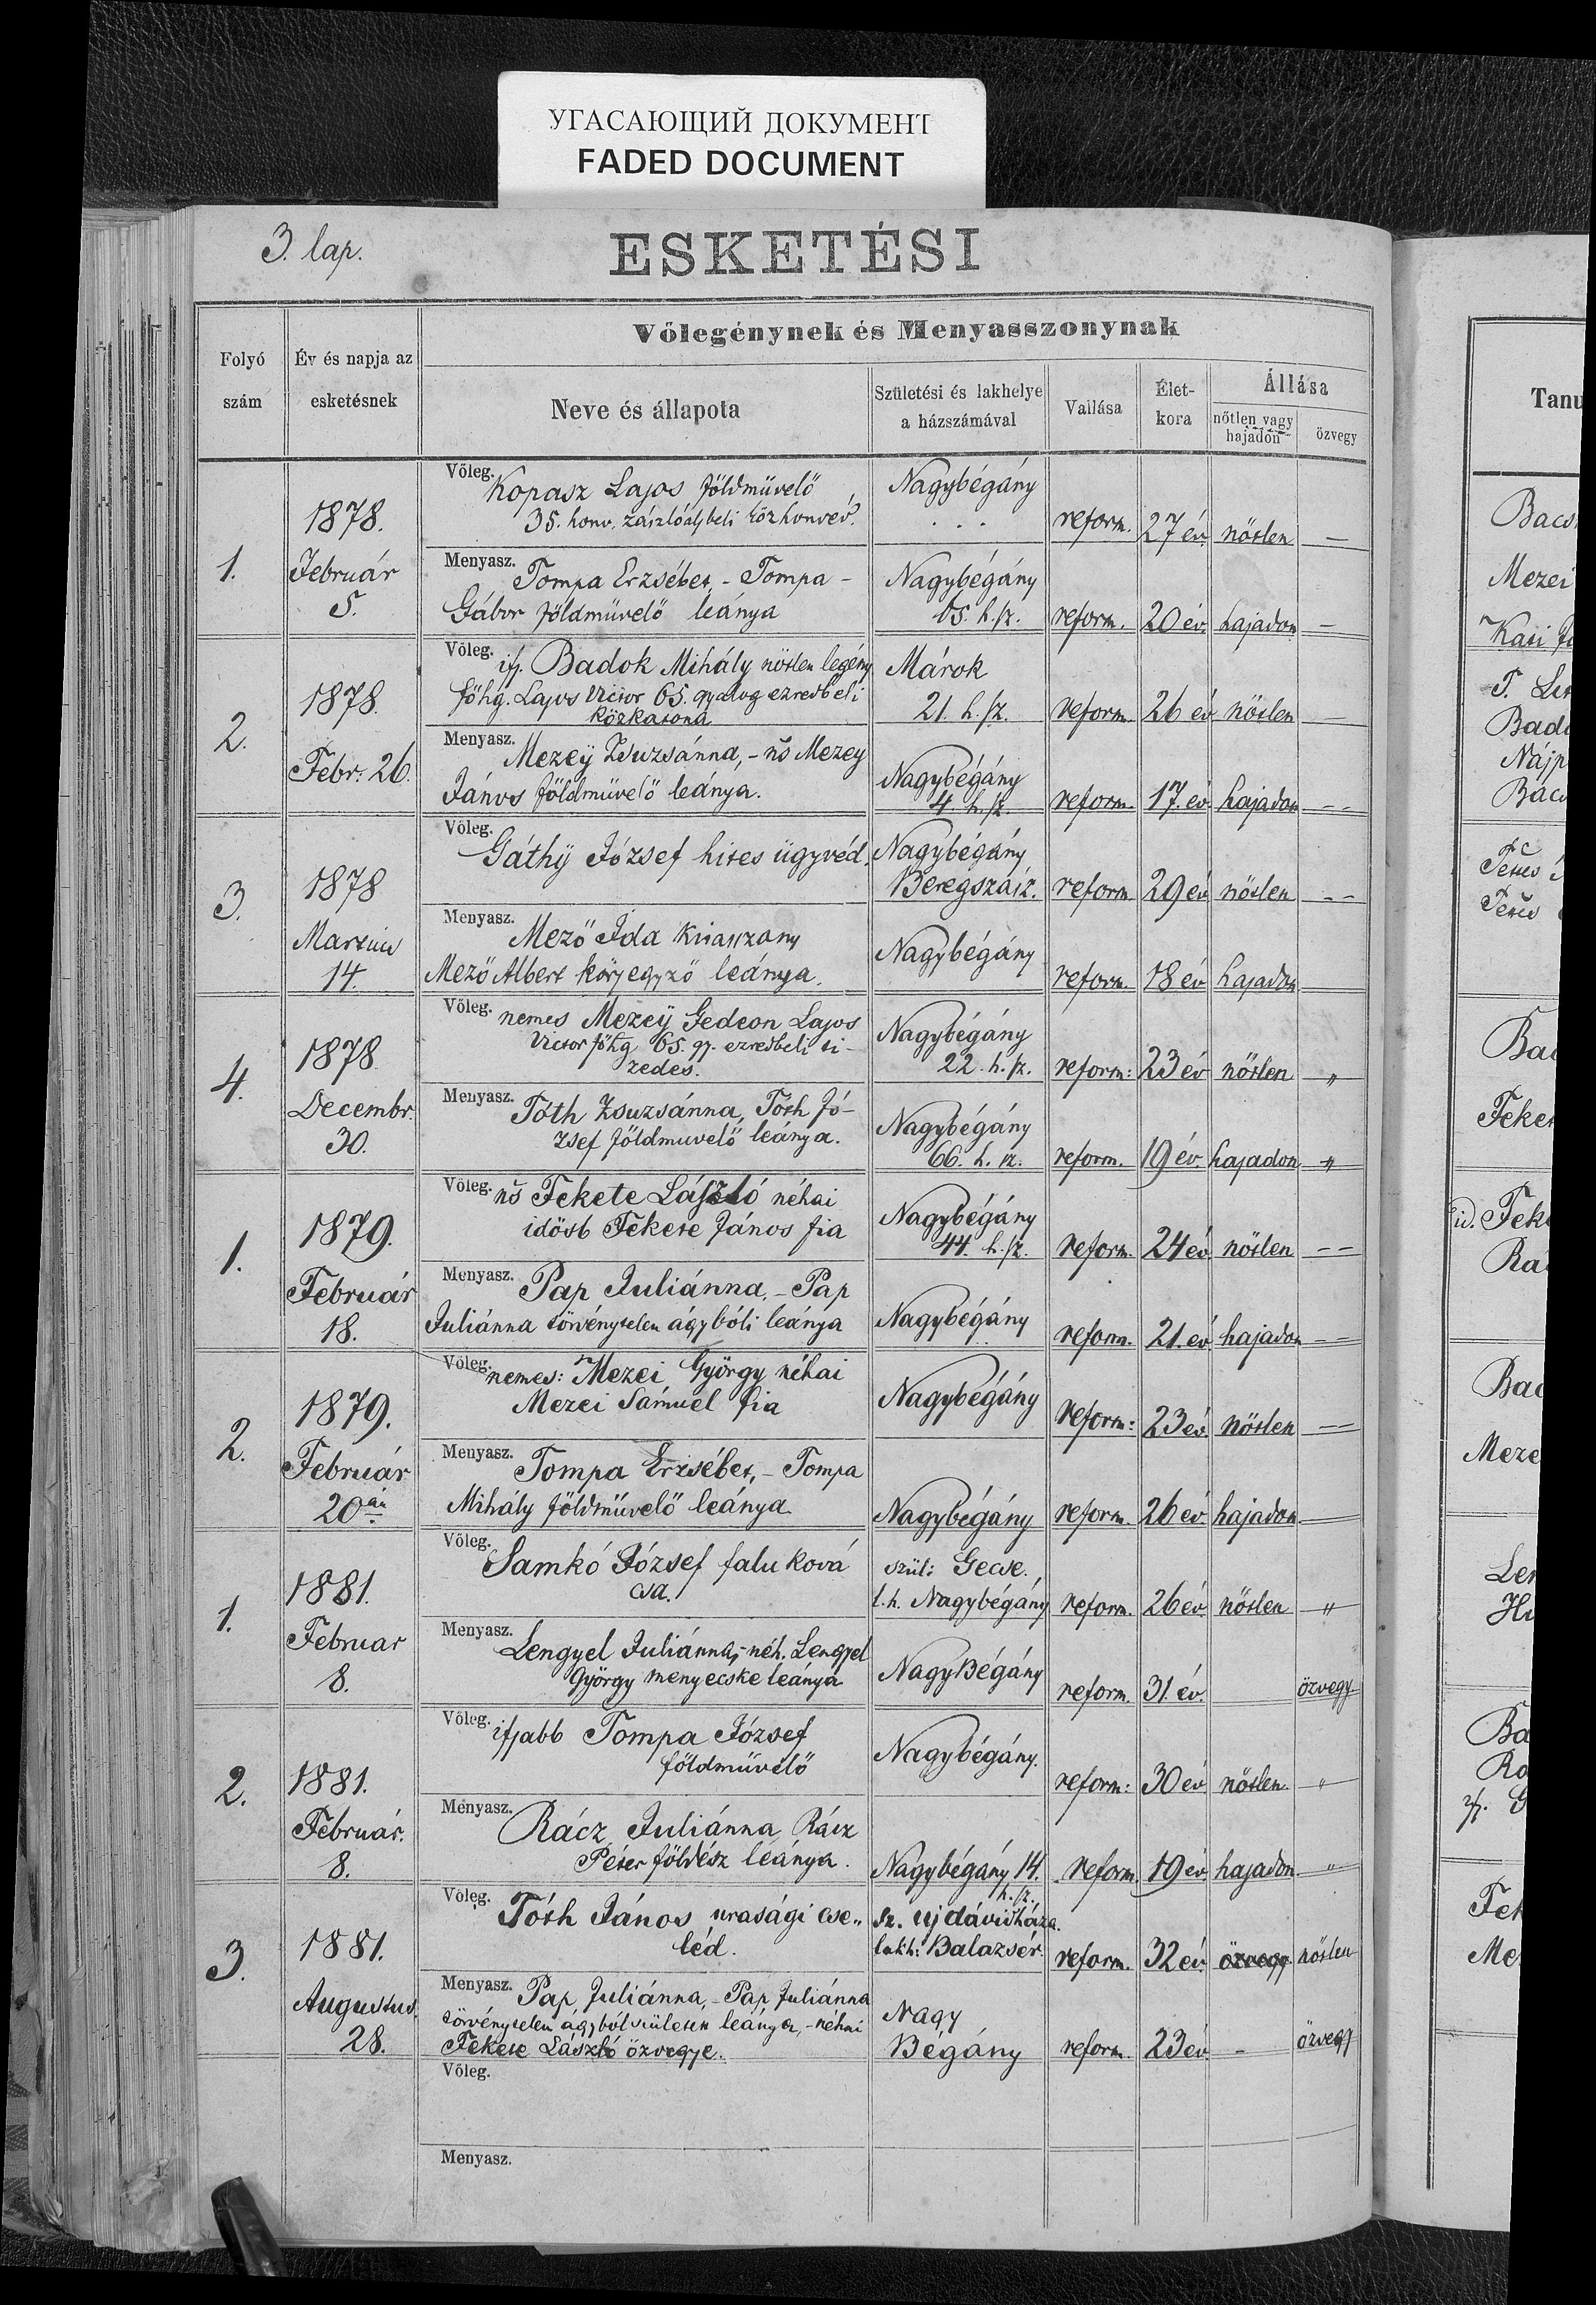 УГАСАЮЩИЙ ДОКУМЕНТ
FADED DOCUMENT
3. lap.
ESKETÉSI
Folyó szám
Év és napja az esketésnek
Vőlegénynek és Menyasszonynak
Neve és állapota
Születési és lakhelye a házszámával
Vallása
Élet-kora
Állása
nőtlen vagy hajadon
özvegy
Tanu
1.
1878.
Február
5.
Vőleg.
Kopasz Lajos földmüvelő
35. honv. zászlóaljbeli közhonvéd.
Nagybégány
reform. 27 év. nőtlen —
Menyasz.
Tompa Erzsébet, - Tompa -
Gábor földmüvelő leánya
Nagybégány
65. h. sz.
reform. 20 év. hajadon —
2.
1878.
Febr. 26.
Vőleg.
ifj. Badok Mihály nőtlen legény
főhg. Lajos Victor 65. gyalog ezredbeli
közkatona
Márok
21. h. sz.
reform. 26 év nőtlen —
Menyasz.
Mezeÿ Zsuzsánna, - ns Mezey
János földmüvelő leánya.
Nagybégány
4. h. sz.
reform. 17. év. hajadon --
3.
1878
Martius
14.
Vőleg.
Gáthÿ József hites ügyvéd.
Nagybégány
Beregszász.
reform. 29 év nőtlen --
Menyasz.
Mező Ida kisasszony
Mező Albert körjegyző leánya.
Nagybégány
reform. 18 év hajadon
4.
1878.
Decembr.
30.
Vőleg.
nemes Mezeÿ Gedeon Lajos
Victor főhg 65. gy. ezredbeli ti-
zedes.
Nagybégány
22. h. sz.
reform: 23 év nőtlen „
Menyasz.
Tóth Zsuzsánna, Tóth Jó-
zsef földmuvelő leánya.
Nagybégány
66. h. sz.
reform. 19 év. hajadon „
1.
1879.
Február
18.
Vőleg.
ns Fekete László néhai
idősb Fekete János fia
Nagybégány
44. h. sz.
reform. 24 év nőtlen --
Menyasz.
Pap Juliánna. - Pap
Juliánna törvénytelen ágybóli leánya
Nagybégány
reform. 21. év hajadon --
2.
1879.
Február
20án
Vőleg.
nemes: Mezei György néhai
Mezei Sámuel fia
Nagybégány
reform: 23 év. nőtlen —
Menyasz.
Tompa Erzsébet, - Tompa
Mihály földmüvelő leánya
Nagybégány
reform. 26 év hajadon —
1.
1881.
Februar
8.
Vőleg.
Samkó József falu ková
csa.
szül: Gecse.
l.h. Nagybégány
reform. 26 év. nőtlen „
Menyasz.
Lengyel Juliánna, - néh. Lengyel
György menyecske leánya
NagyBégány
reform. 31. év. özvegy
2.
1881.
Február.
8.
Vőleg.
ifjabb Tompa József
földmüvelő
Nagybégány.
reform: 30 év nőtlen. „
Menyasz.
Rácz Juliánna, Rácz
Péter földész leánya.
Nagybégány 14.
h. sz.
reform. 19 év hajadon „
3.
1881.
Augustus.
28.
Vőleg.
Tóth János urasági cse„
léd.
Sz. Ujdávidháza.
lakh: Balazsér.
reform. 32 év. özvegy nőtlen
Menyasz.
Pap Juliánna, - Pap Juliánna
törvénytelen ágyból született leánya, - néhai
Fekete László özvegye.
Nagy
Bégány
reform. 23 év. - özvegy
Vőleg.
Menyasz.